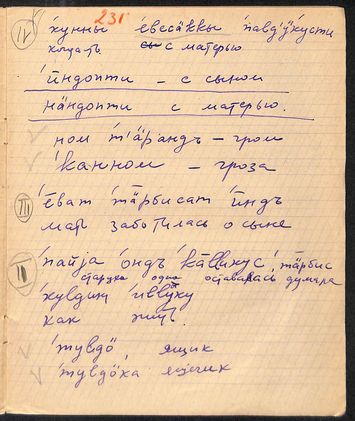 231
IV 'кунны 'ёвеса̄ккы 'павд'ӱ'кусти
сы с матерью
'ӣндопти – с сыном
на̄ндопти с матерью.
ном т'ӓрандъ – гром
'канном – гроза
III 'ёват 'та̄рбисат 'индъ
мать заботилась о сыне
II 'пајја 'ондъ 'ка̄лликус', 'та̄рбис
старуха одна оставалась, думала
'кулдин 'иллыку
как жить.
'тувдӧ, ящик
'тувдӧка ящичек